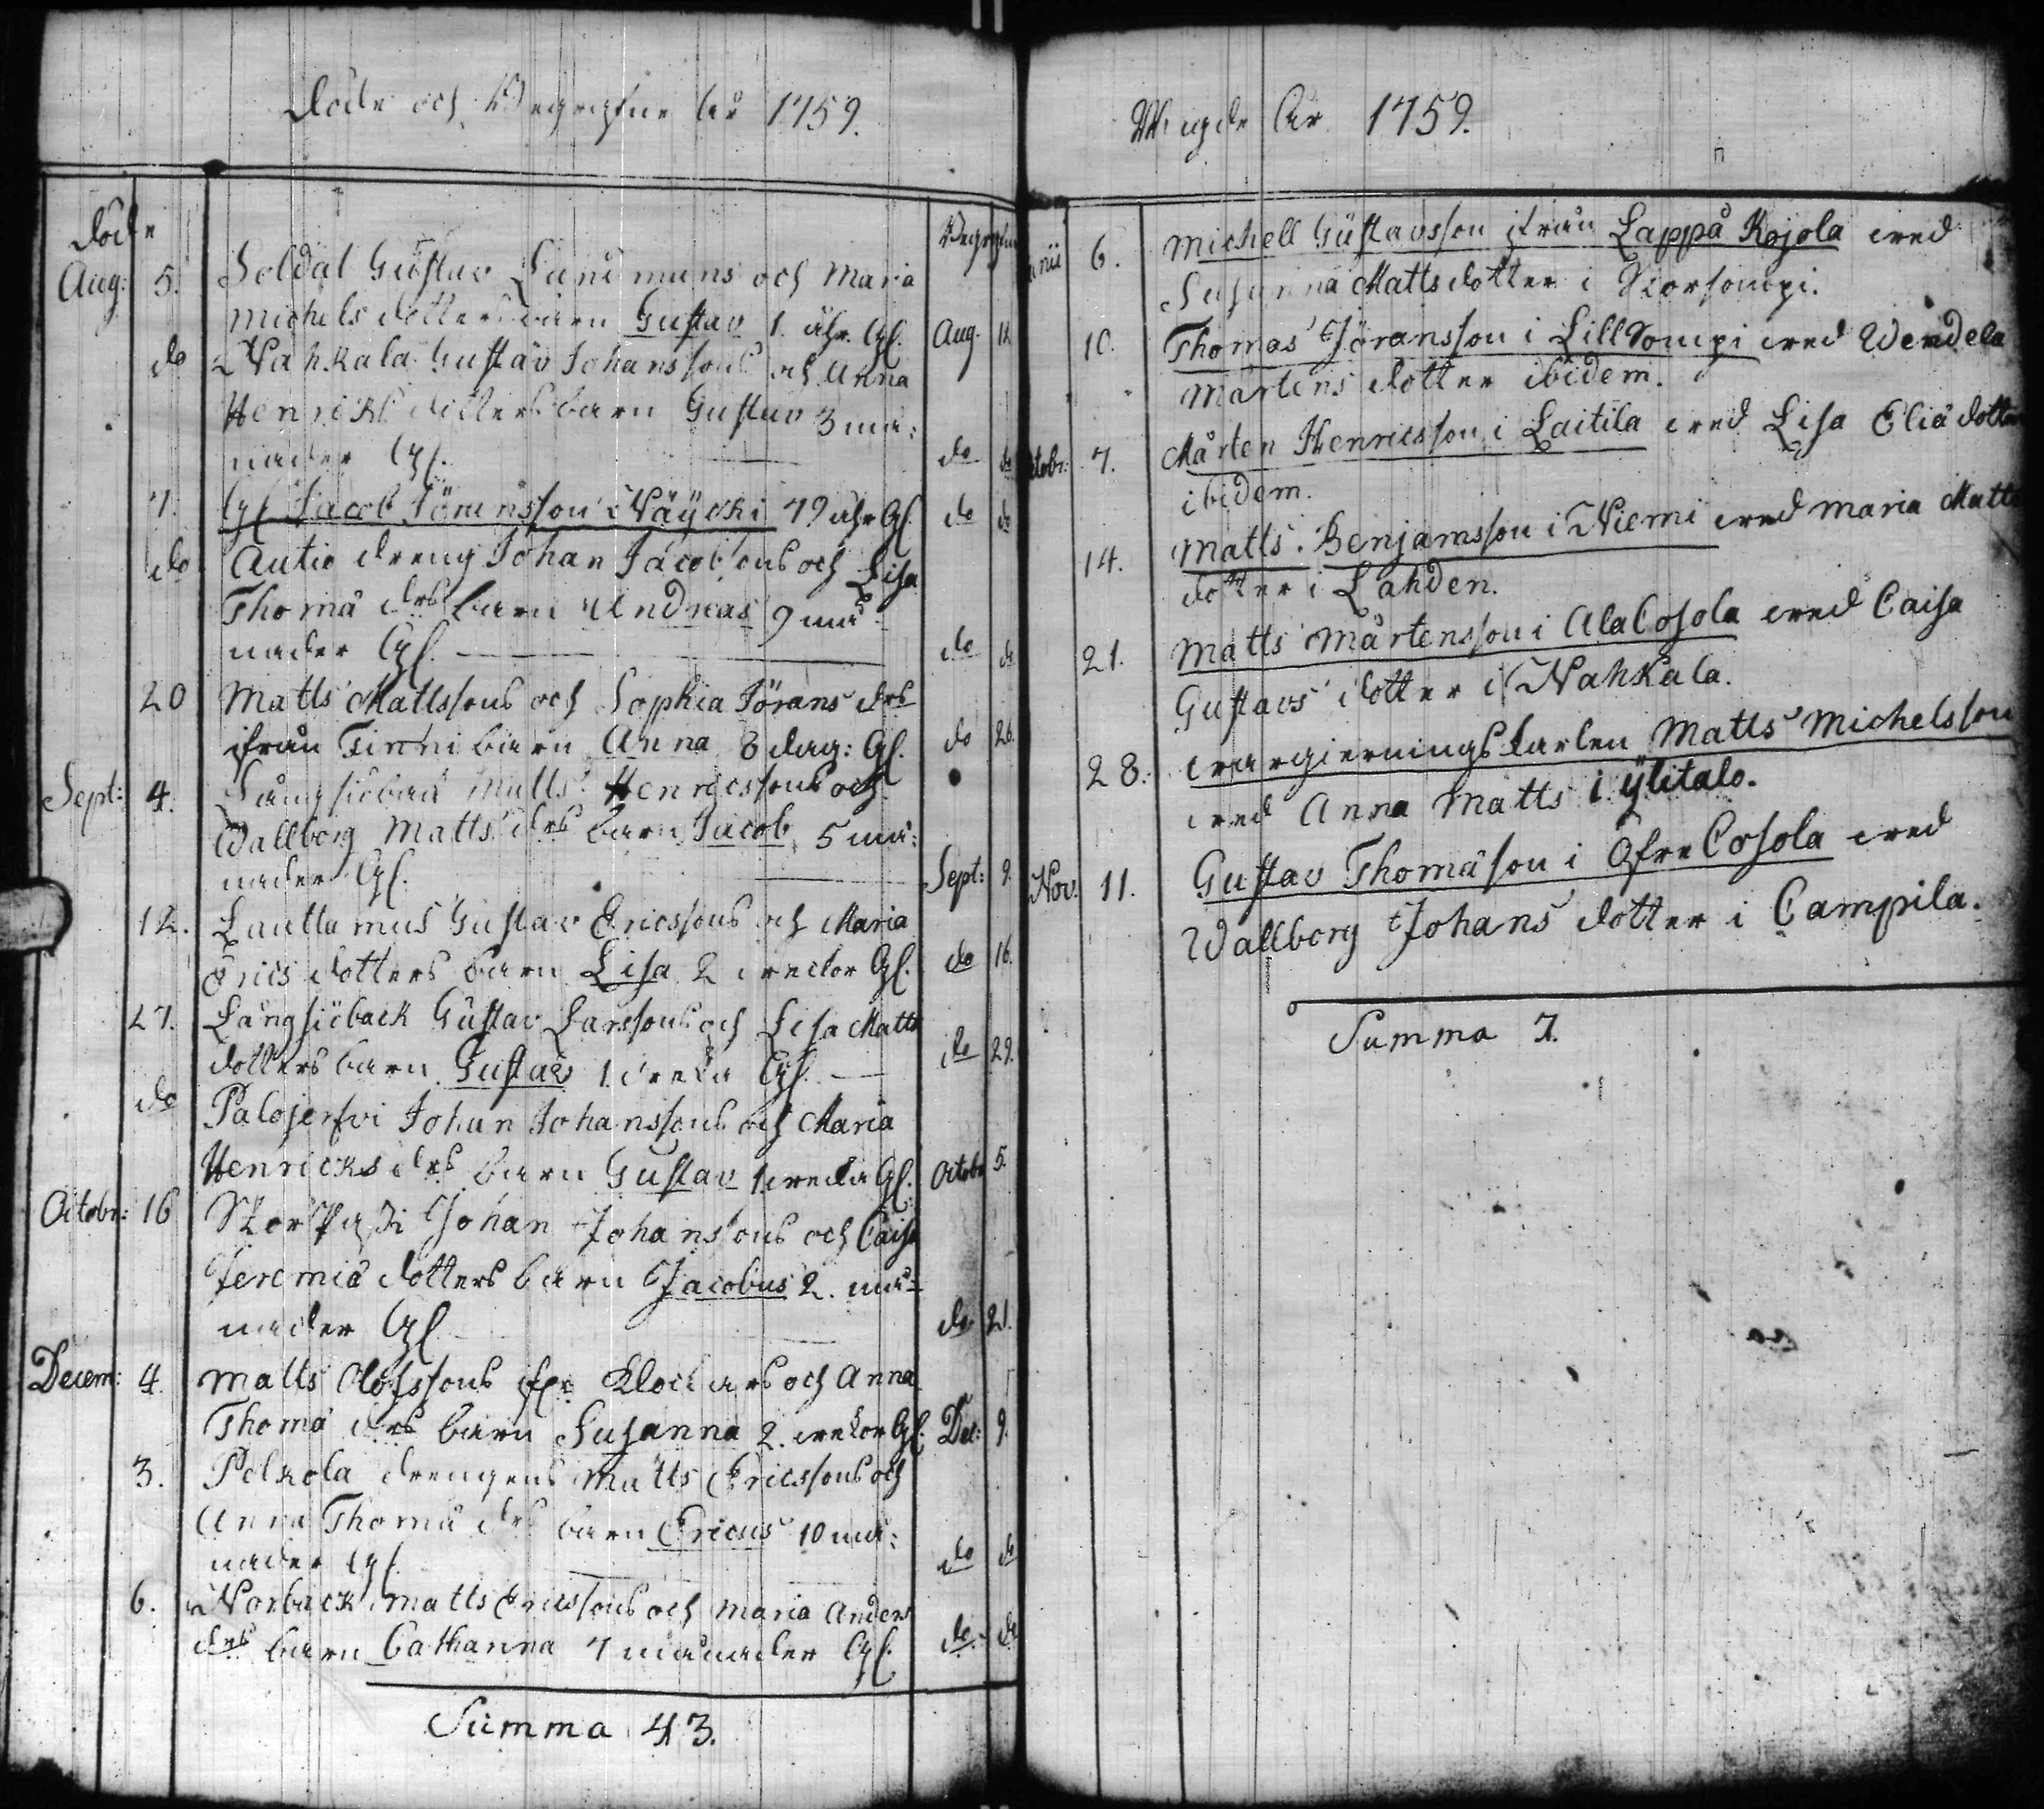 Döde och Begrafne år 1759.
Döde
Begrafne
Aug: 5. Soldat Gustav Landmans och Maria
Michels dotters barn Gustav 1. åhr Gl. Aug. 12
do Nahkala Gustav Johanssons och Anna
Henricks dotters barn Gustav 3 må:
nader Gl. do do
7. Gl. Jacob Jöransson i Näÿcki 79 åhr Gl. do do
do Autio dreng Johan Jacobsons och Lisa
Thomä drs barn Andreas 9 må=
nader Gl. do do
20 Matts Mattssons och Sophia Jörans drs
ifrån Finni barn Anna 8 dag: Gl. do 26.
Sept: 4. Långsiöback Matts Henricssons och
Wallborg Matts drs barn Jacob 5 må:
nader Gl. Sept: 9.
12. Lauttamus Gustav Ericssons och Maria
Erics dotters barn Lisa 2 weckor Gl. do 16.
27. Långsiöback Gustav Larssons och Lisa Matts
dotters barn Gustav 1 wecka Gl. do 29.
do Palojerfvi Johan Johanssons och Maria
Henricks drs barn Gustav 1 wecka Gl. Octobr 5.
Octobr: 16 Stor Johan Johanssons och Caisa
Jeremiä dotters barn Jacobus 2. må=
nader Gl. do 21.
Decem: 4. Matts Olofssons ifr: Klockars och Anna
Thomä drs barn Susanna 2. weckor Gl. Dec: 9.
3. Pelkola drengens Matts Ericssons och
Anna Thomä drs barn Ericus 10 må:
nader Gl. do do
6. Norback Matts Ericssons och Maria Anders
drs barn Catharina 7 månader Gl. do do
Summa 43.
Wigde År 1759.
Junii 6. Michell Gustavsson ifrån Lappå Kojola med
Susanna Mattsdotter i Storsompi.
10. Thomas Jöransson i LillSompi med Wendela
Mårtens dotter ibidem.
Octobr: 7. Mårten Henricsson i Laitila med Lisa Eliä dotter
ibidem.
14. Matts Benjamsson i Niemi med Maria Matts
dotter i Lahden.
21. Matts Mårtensson i AlaCosola med Caisa
Gustavs dotter i Nahkala.
28. Matts Michelsson
med Anna Matts i ÿlitalo.
Nov. 11. Gustav Thomäson i ÖfreCosola med
Wallborg Johans dotter i Campila.
Summa 7.